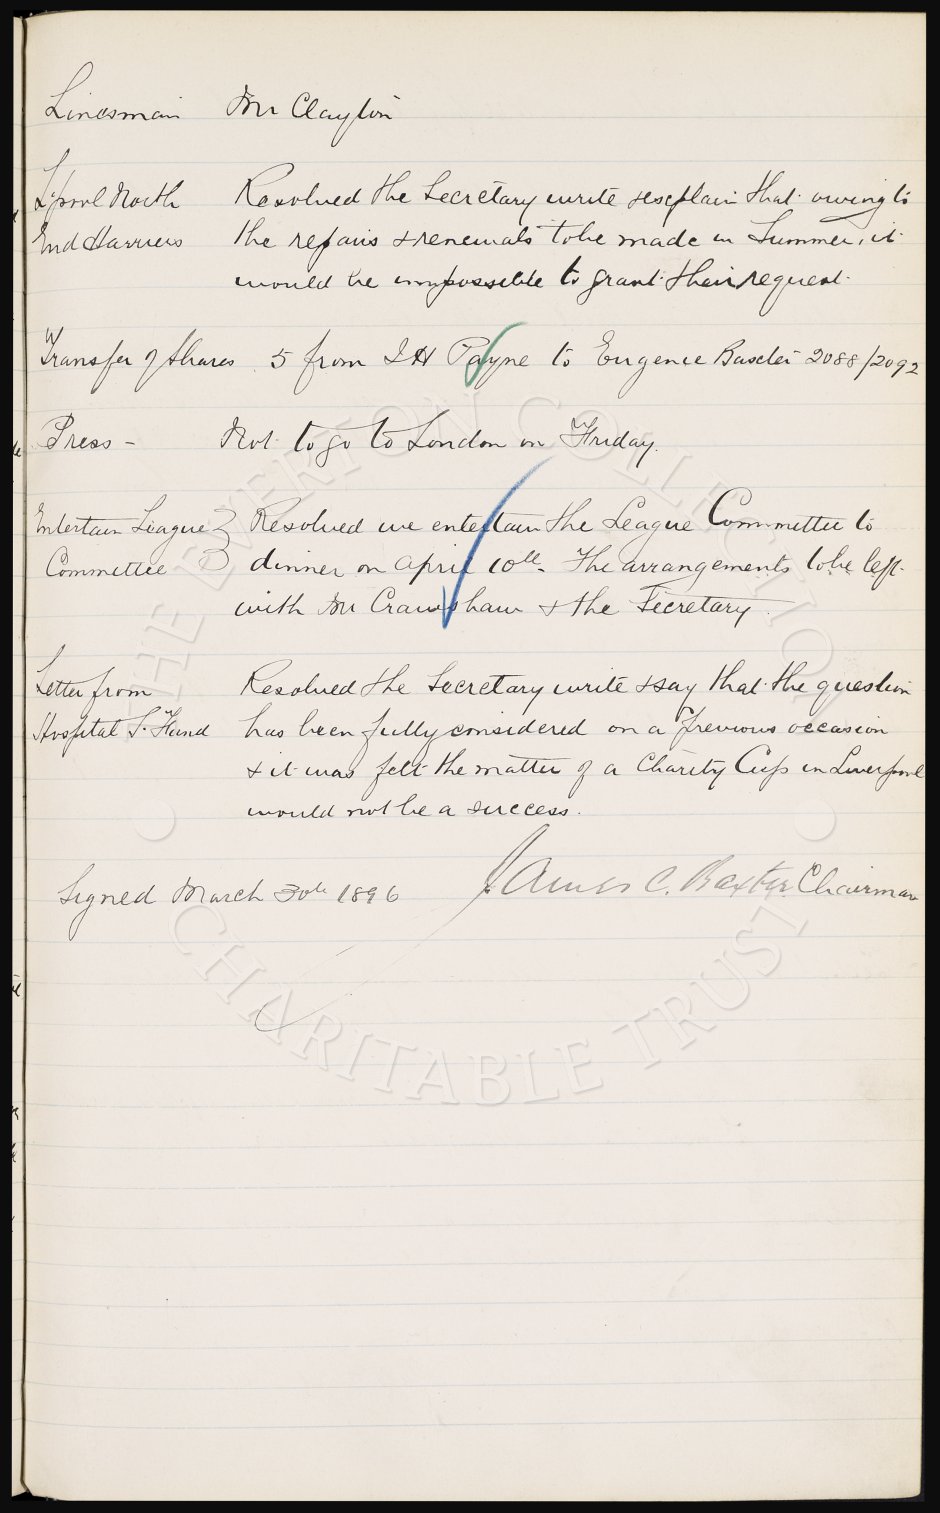 Linesman Mr Clayton
L'pool North Resolved the Secretary write & explain that owing to
End Harriers the repairs & renewals to be made in Summer, it
would be impossible to grant their request.
Transfer of Shares 5 from J H Payne to Eugene Baxter 2088/2092
Press - Not to go to London on Friday.
Entertain League Resolved we entertain the League Committee to
Committee dinner on April 10th. The arrangements to be left
with Mr Crawshaw & the Secretary.
Letter from Resolved the Secretary write & say that the question
Hospital S. Fund has been fully considered on a previous occasion
& it was felt the matter of a Charity Cup in Liverpool
would not be a success.
Signed March 30th 1896 James C. Baxter Chairman
THE EVERTON COLLECTION
CHARITABLE TRUST